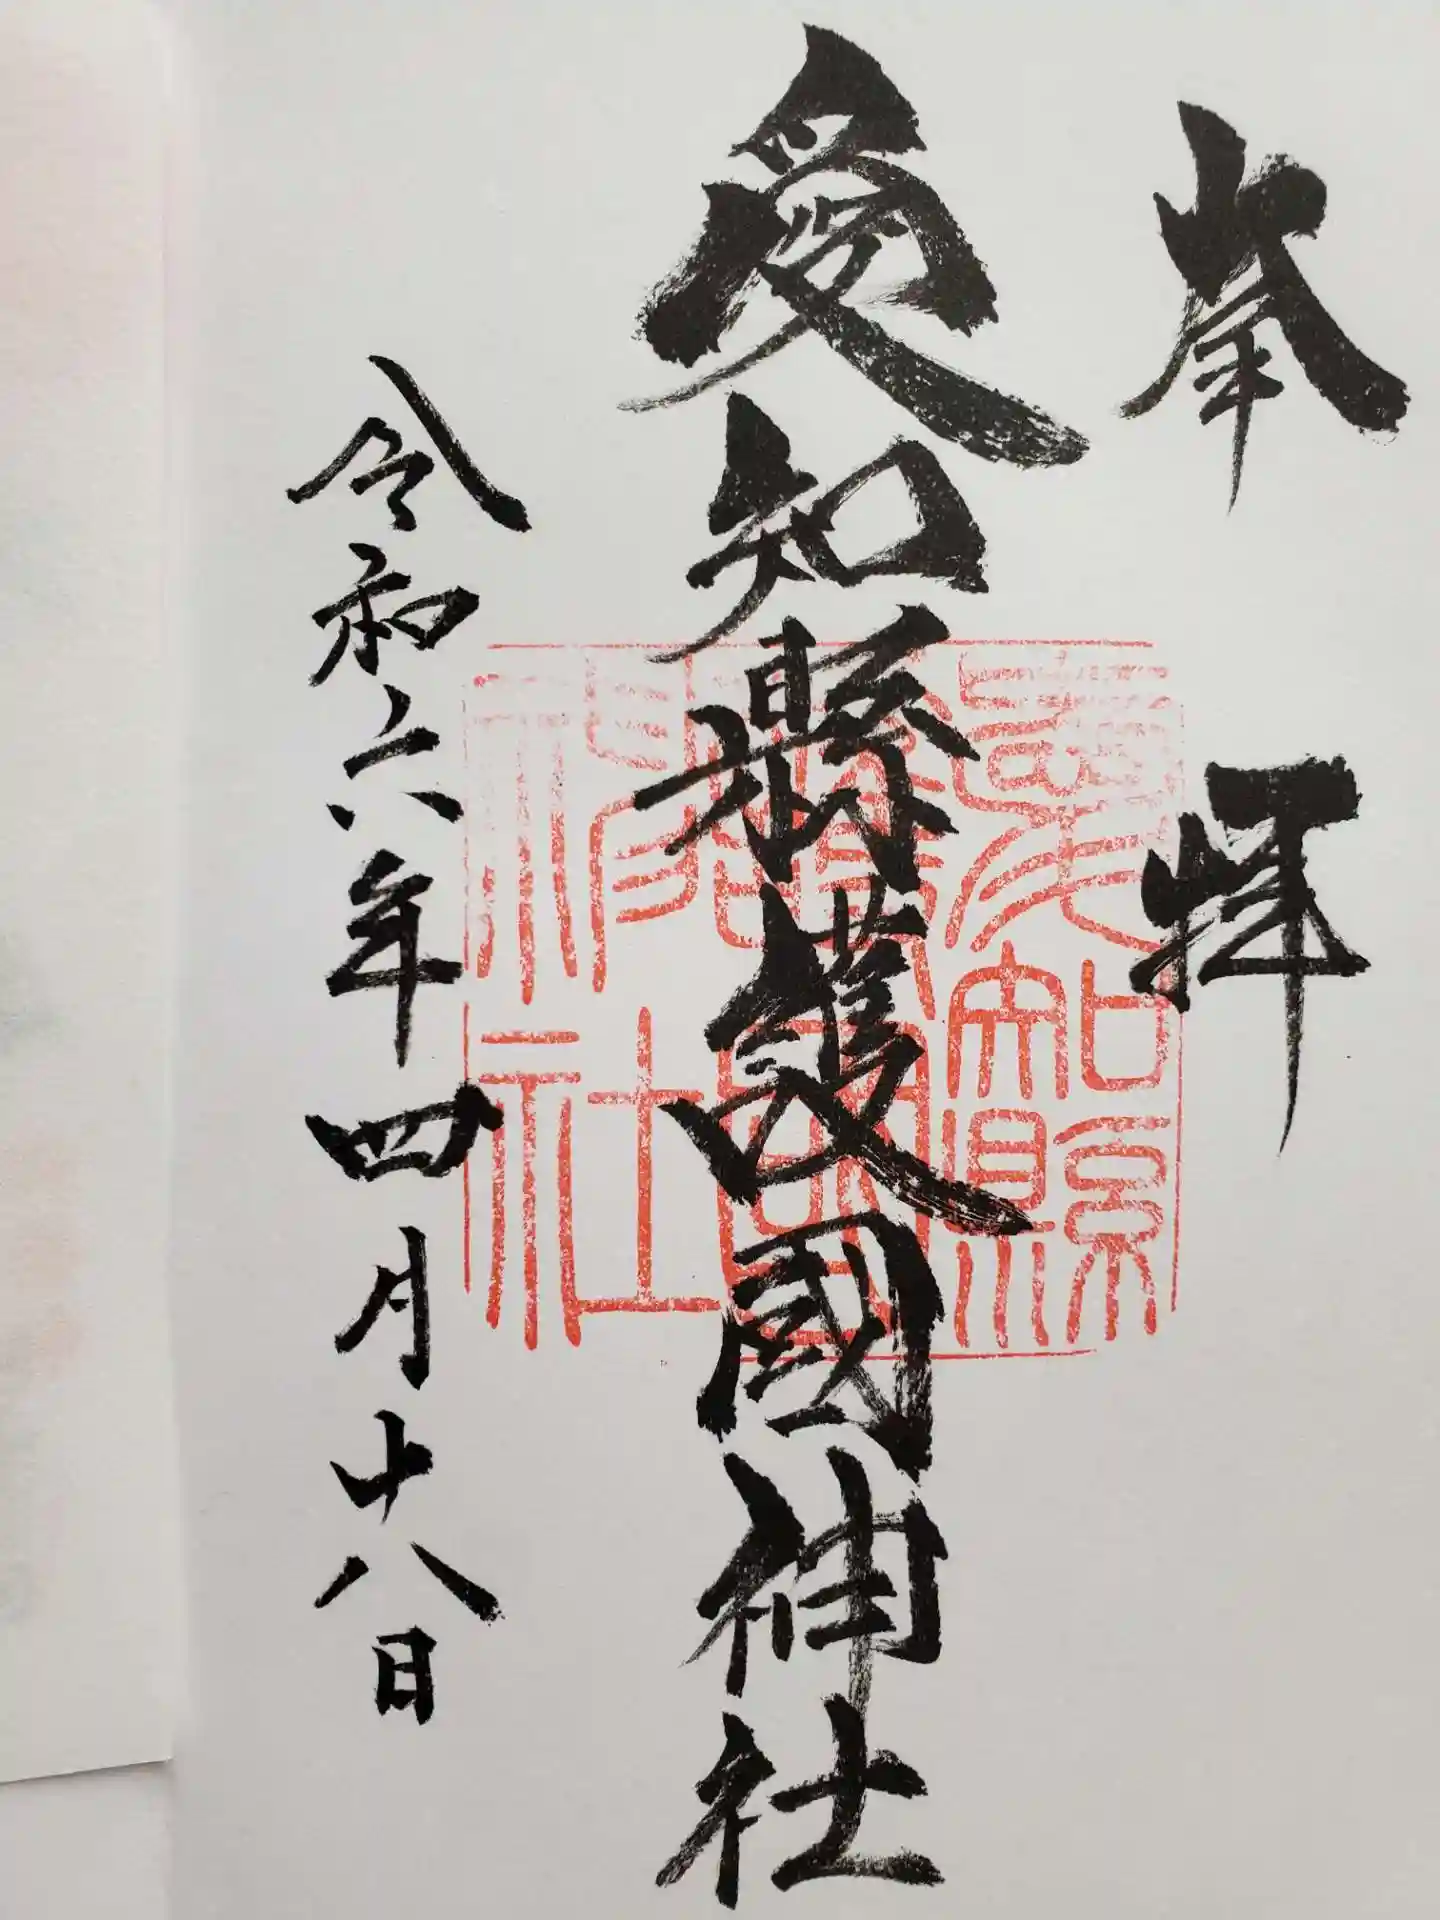 奉拝
愛知縣護國神社
愛知縣護國神社
令和六年四月十八日